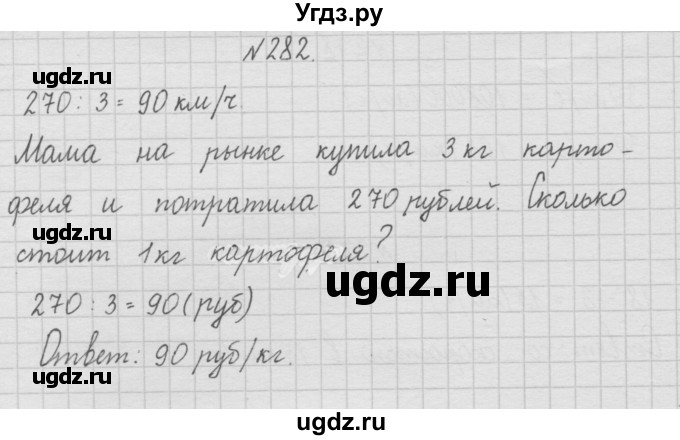 Угдз.ру
№282.
ugdz.ru
ugdz.ru
270 : 3 = 90 км/ч.
Мама на рынке купила 3 кг карто-
феля и потратила 270 рублей. Сколько
стоит 1 кг картофеля?
ugdz.ru
ugdz.ru
ugdz.ru
270 : 3 = 90 (руб)
Ответ: 90 руб/кг.
ugdz.ru
ugdz.ru
ugdz.ru